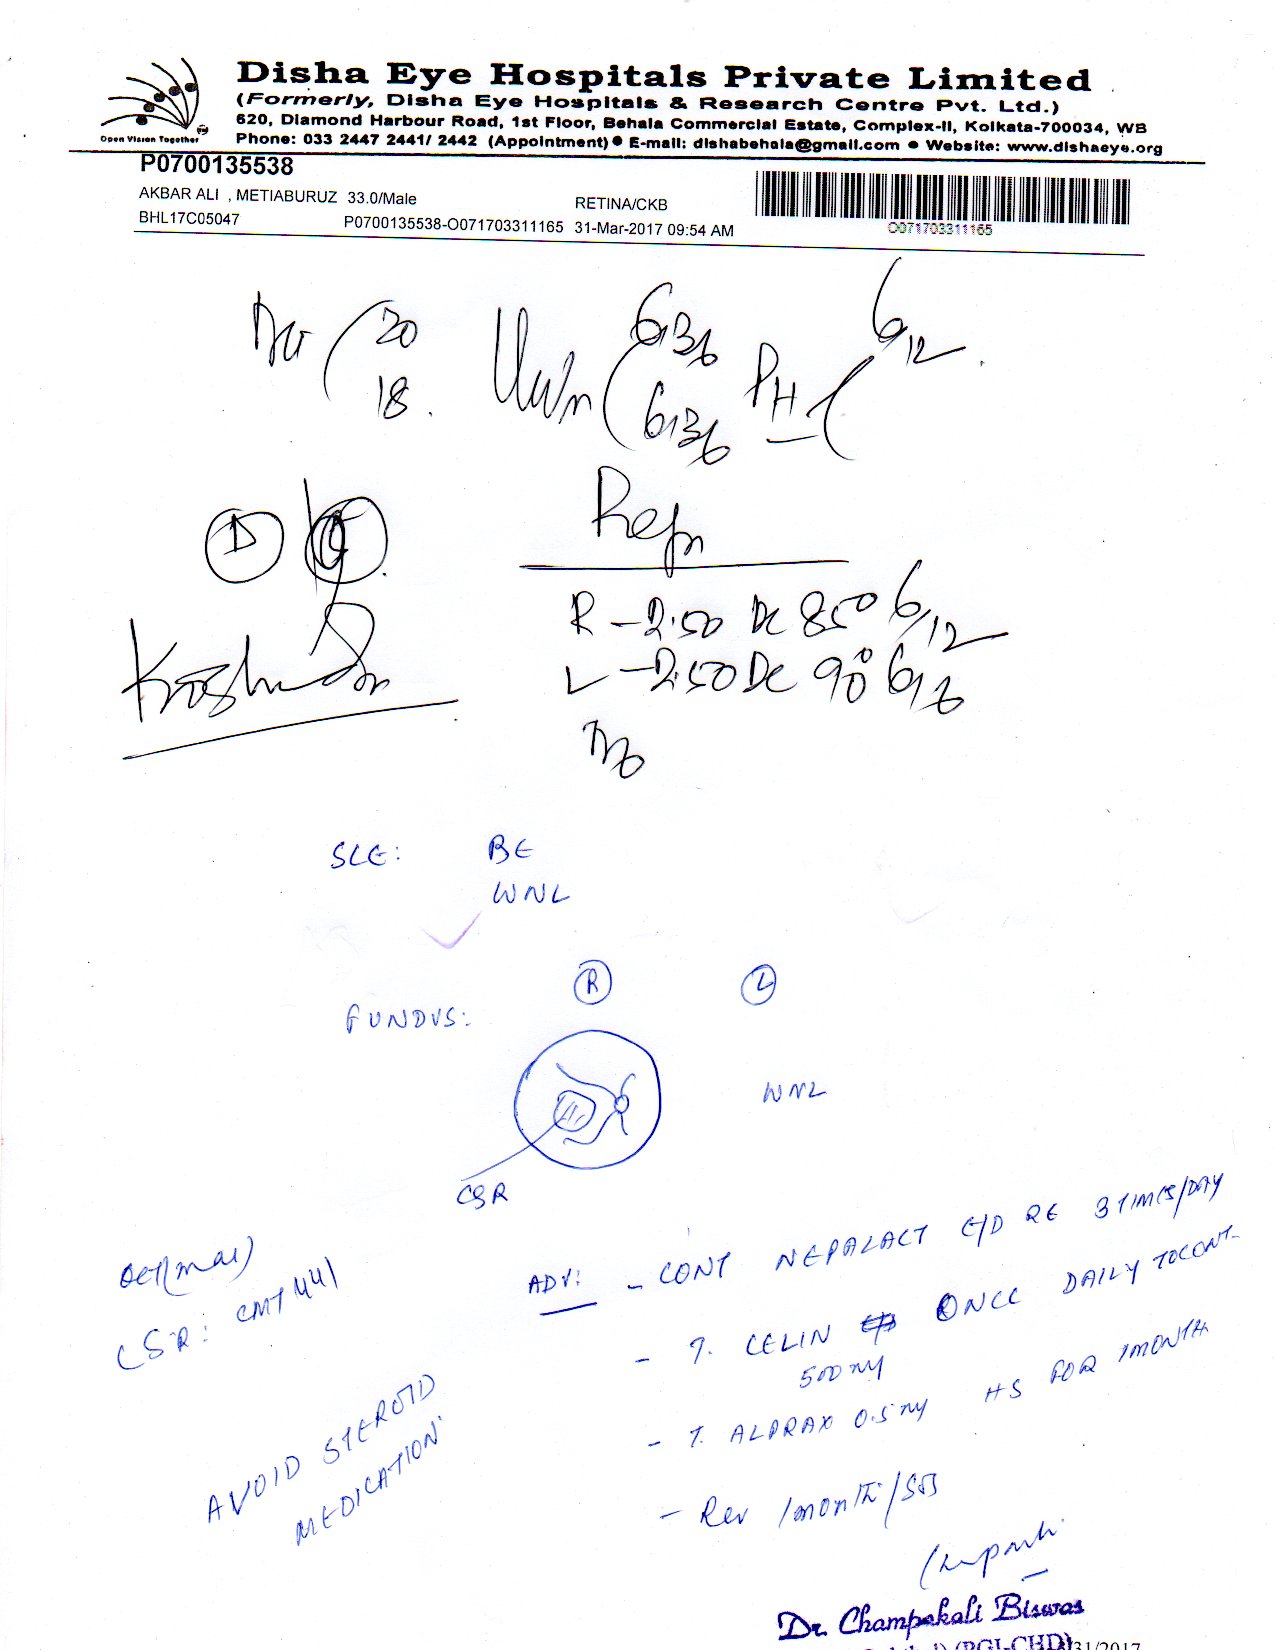 Disha Eye Hospitals Private Limited
(Formerly, Disha Eye Hospitals & Research Centre Pvt. Ltd.)
620, Diamond Harbour Road, 1st Floor, Behala Commercial Estate, Complex-II, Kolkata-700034, WB
Open Vision Together
Phone: 033 2447 2441/ 2442 (Appointment) ● E-mail: dishabehala@gmail.com ● Website: www.dishaeye.org
P0700135538
AKBAR ALI , METIABURUZ 33.0/Male
RETINA/CKB
BHL17C05047
P0700135538-O071703311165 31-Mar-2017 09:54 AM
O071703311165
20
18
6/36
6/36
PH
6/12
D
Refn
R -2.50 DC 85° 6/12
L -2.50 DC 90°
SLE: BE
WNL
R L
FUNDUS:
WNL
CSR
OCT(mac)
CSR: CMT 441
ADV: - CONT NEPALACT E/D RE 3 TIMES/DAY
- T. CELIN ONCE DAILY TO CONT-
500 mg
- T. ALPRAX 0.5 mg HS FOR 1 MONTH
- Rev 1 month / SOS
AVOID STEROID
MEDICATION
Dr. Champakali Biswas
(PGI-CHD)
31/2017